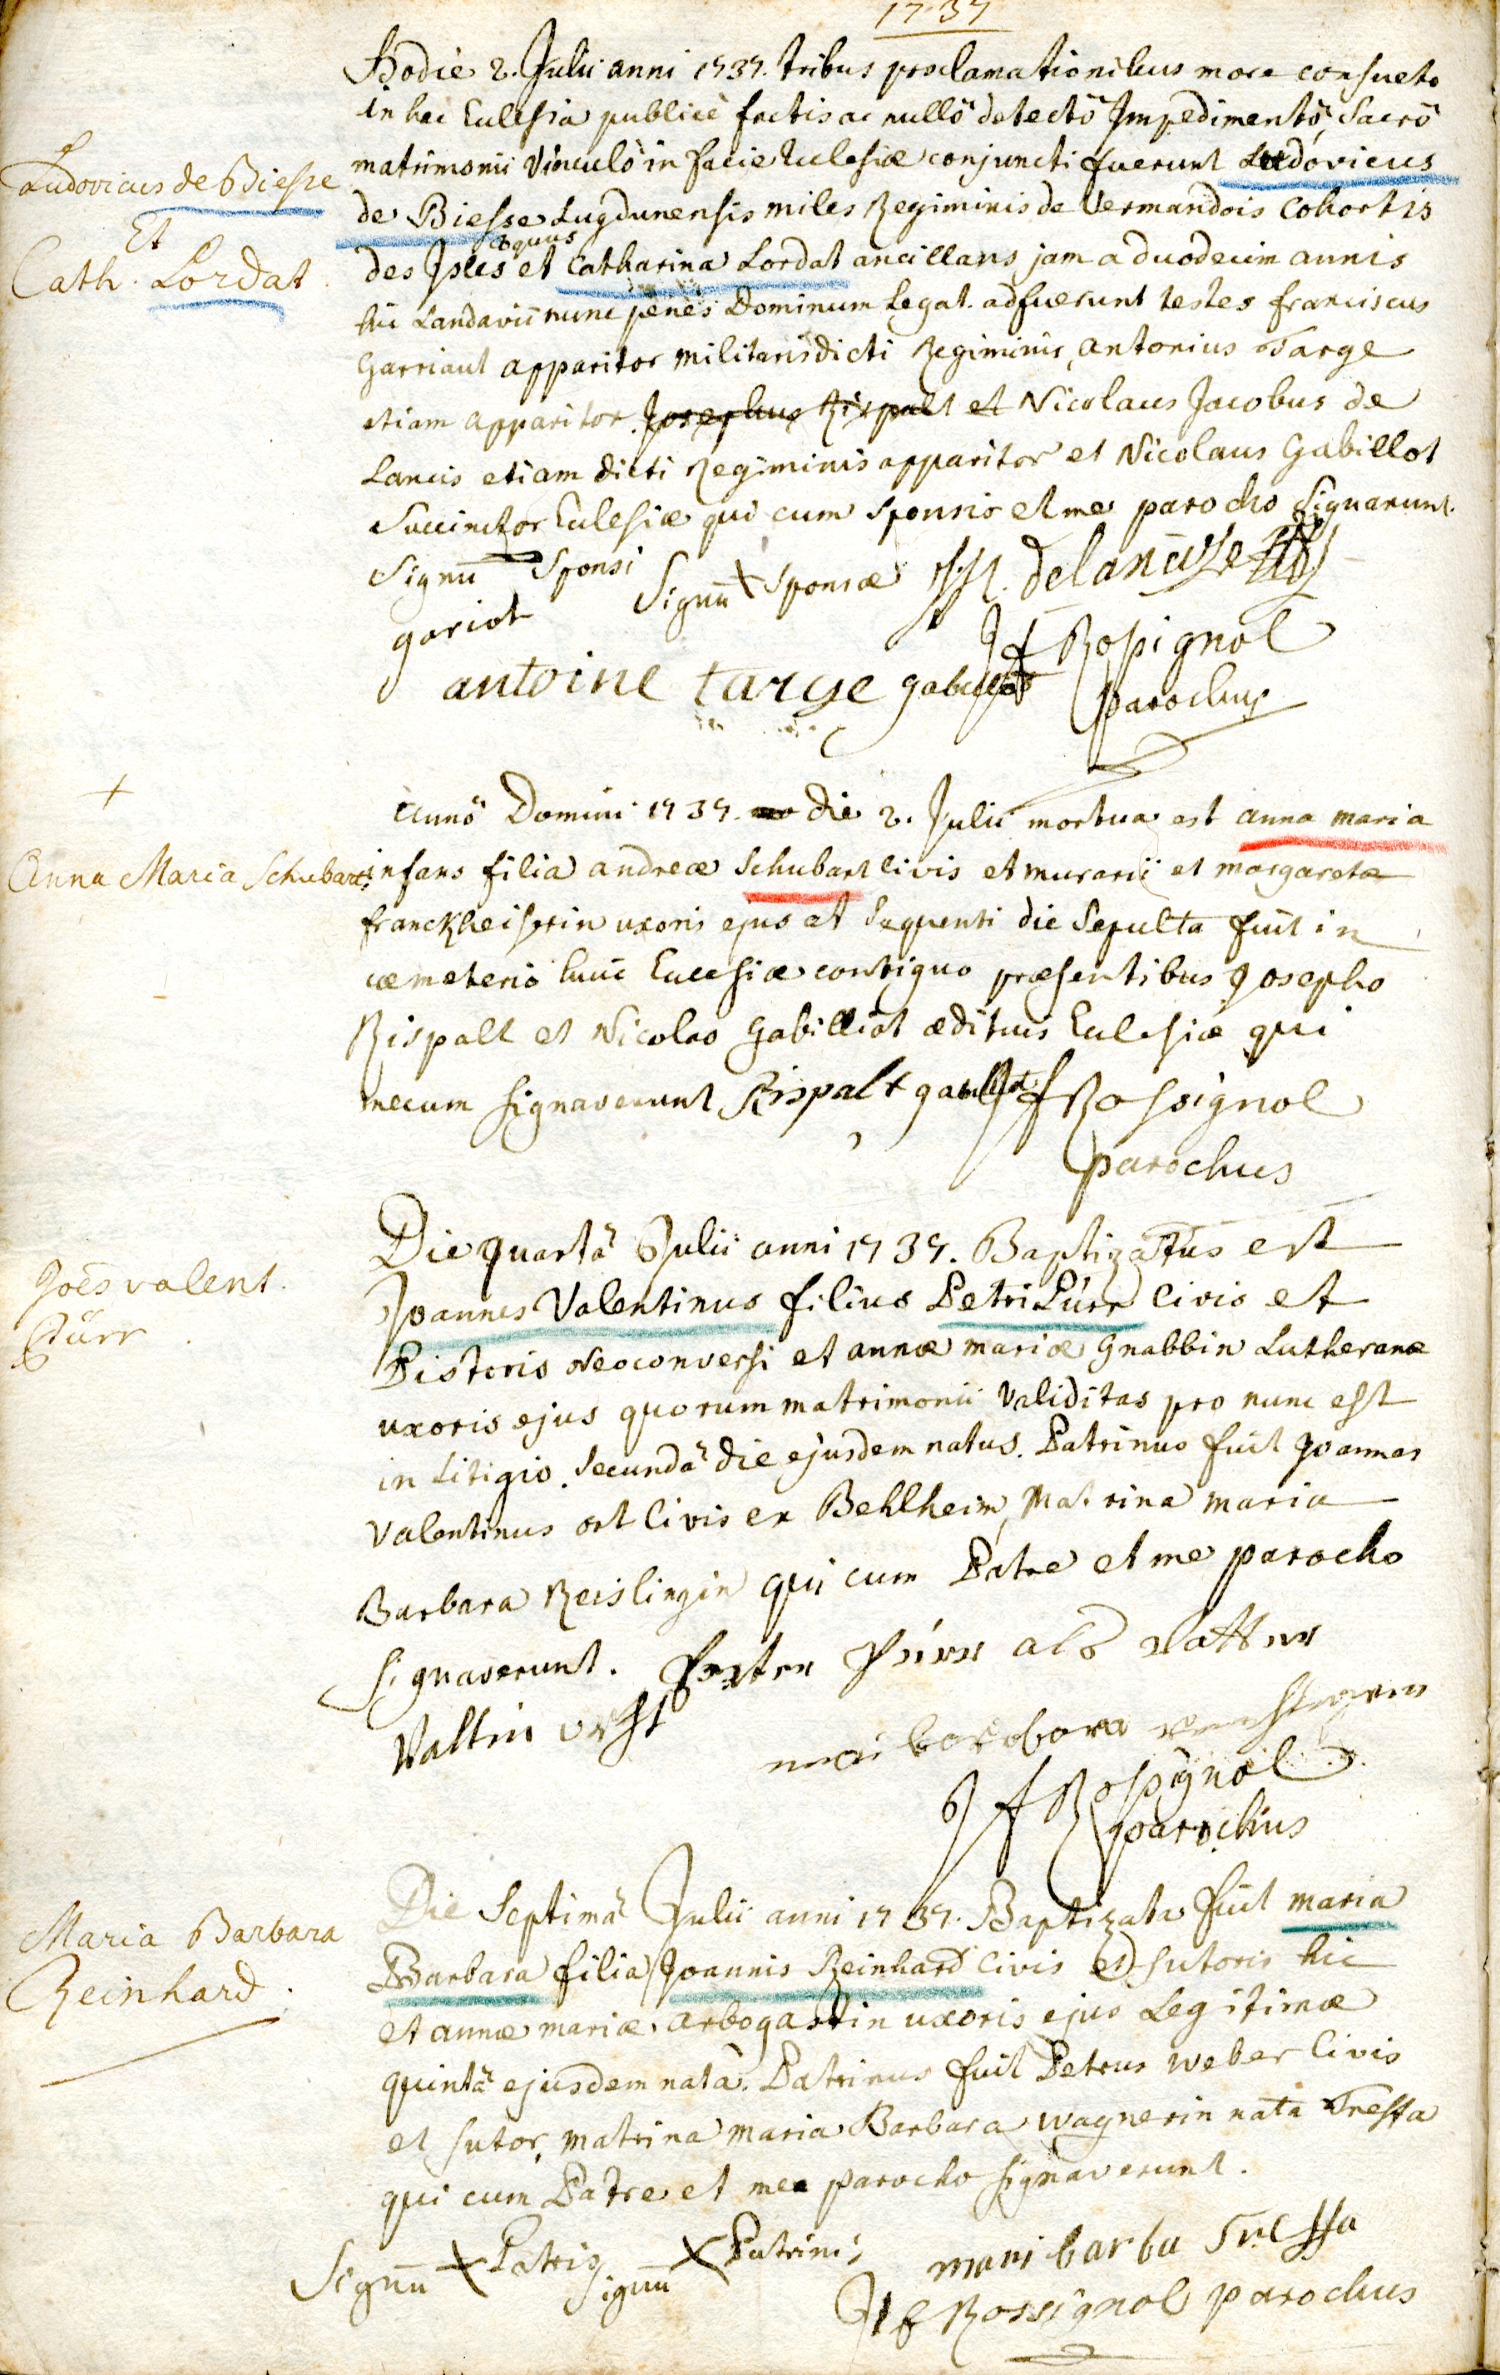 1737
Hodie 2. Julii anni 1737. tribus proclamationibus more consueto
in hac Eclesia publicè factis ac nullô detectô Impedimentô, Sacrô
matrimonii Vinculô in facie Eclesiæ conjuncti fuerunt Ludovicus
Ludovicus de Biesse
Et
Cath. Lordat
de Biesse Lugdunensis miles Regiminis de Vermandois Cohortis
des Isles et Catharina Lordat ancillans jam a duodecim annis
hic Landavii nunc penes Dominum Legat. adfuerunt testes franciscus
Garriaut apparitor militaris dicti Regiminis, antonius Targe
etiam apparitor Josephus Rispalt et Nicolaus Jacobus de
Lancis etiam dicti Regiminis apparitor et Nicolaus Gabillot
Succinctor Eclesiæ qui cum Sponsis et me parocho Signarunt.
Signū Sponsi Signū + Sponsæ
gariot
J f Rossignol
antoine targe gabillot parochus
+
Annô Domini 1737. die 2. Julii mortua est anna maria
Anna Maria Schubart
infans filia andreæ Schubart civis et murarii et margaretæ
franckheiserin uxoris ejus et sequenti die Sepulta fuit in
cæmeterio huic Eccesiæ contiguo præsentibus Josepho
Rispalt et Nicolao Gabilliot ædituis Eclesiæ qui
mecum signaverunt Rispalt gabillot J f Rossignol
parochus
Die quartâ Julii anni 1737. Baptizatus est
Joēs valent.
Pürr
Joannes Valentinus filius Petri Pürr Civis et
Pistoris Neoconversi et annæ mariæ Gnabbin Lutheranæ
uxoris ejus quorum matrimonii Validitas pro nunc est
in Litigio. Secundâ die ejusdem natus. Patrinus fuit Joannes
Valentinus ort Civis ex Behlheim, Matrina maria
Barbara Reislingin qui cum Patre et me parocho
signaverunt. Petter Pürr als Vatter
Valltin orst
mari barbara
J f Rossignol
parochus
Die Septimâ Julii anni 1737. Baptizata fuit maria
Maria Barbara
Reinhard
Barbara filia Joannis Reinhard Civis et sutoris hic
et annæ mariæ arbogastin uxoris ejus Legitimæ
quintâ ejusdem nata. Patrinus fuit Petrus Weber Civis
et sutor, matrina maria Barbara Wagnerin nata Tressa
qui cum Patre et me parocho signaverunt.
Signū + Patris Signū X Patrini mari barba Tressa
J f Rossignol parochus